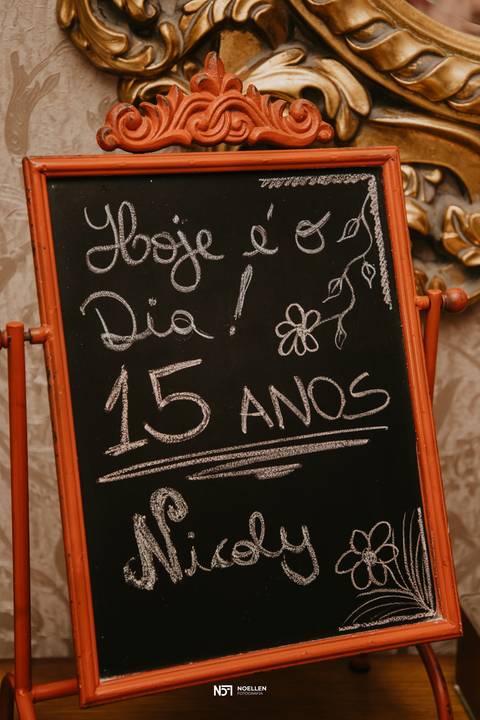 Hoje é o
Dia!
15 ANOS
Nicoly
N5F NOELLEN
FOTOGRAFIA